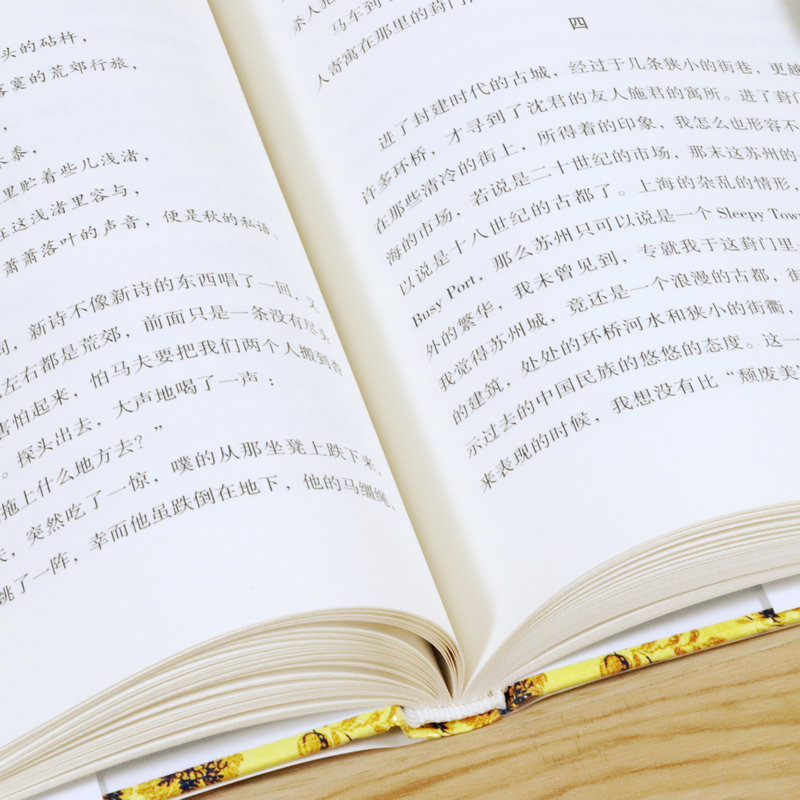 头的砧杵，
落寞的荒郊行旅，
，
禾黍，
里贮着些儿浅渚，
在这浅渚里容与，
萧萧落叶的声音，便是秋的私语。
新诗不像新诗的东西唱了一回，又
左右都是荒郊，前面只是一条没有尽头
害怕起来，怕马夫要把我们两个人搬到
。探头出去，大声地喝了一声：
拖上什么地方去？”
突然吃了一惊，噗的从那坐凳上跌下来，
跳了一阵，幸而他虽跌倒在地下，他的马缰绳，
杀人犯
马车到
人寄寓在那里的葑门
四
进了封建时代的古城，经过于几条狭小的街巷，更越
许多环桥，才寻到了沈君的友人施君的寓所。进了葑门
在那些清冷的街上，所得着的印象，我怎么也形容不
海的市场，若说是二十世纪的市场，那末这苏州的
以说是十八世纪的古都了。上海的杂乱的情形，
Busy Port，那么苏州只可以说是一个 Sleepy Tow
外的繁华，我未曾见到，专就我于这葑门里
我觉得苏州城，竟还是一个浪漫的古都，街
的建筑，处处的环桥河水和狭小的街衢，
示过去的中国民族的悠悠的态度。这一
来表现的时候，我想没有比“颓废美